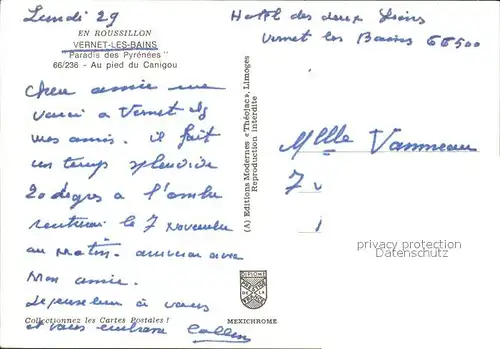 Lundi 29
EN ROUSSILLON
VERNET-LES-BAINS
"Paradis des Pyrénées"
66/236 - Au pied du Canigou
Chère amie me
voici à Vernet
mes amis. il fait
un temps splendide
20 degrés à l'ombre
rentrerai le 7 Novembre
au Matin.
Mon amie.
Je pense bien à vous
et vous embrasse
Collectionnez les Cartes Postales !
(A) Editions Modernes «Théojac», Limoges
Reproduction interdite
DIPLOME
PRESTIGE
DE LA
FRANCE
MEXICHROME
Hotel des deux Lions
Vernet les Bains 66500
Mlle Vanneau
7
privacy protection
Datenschutz